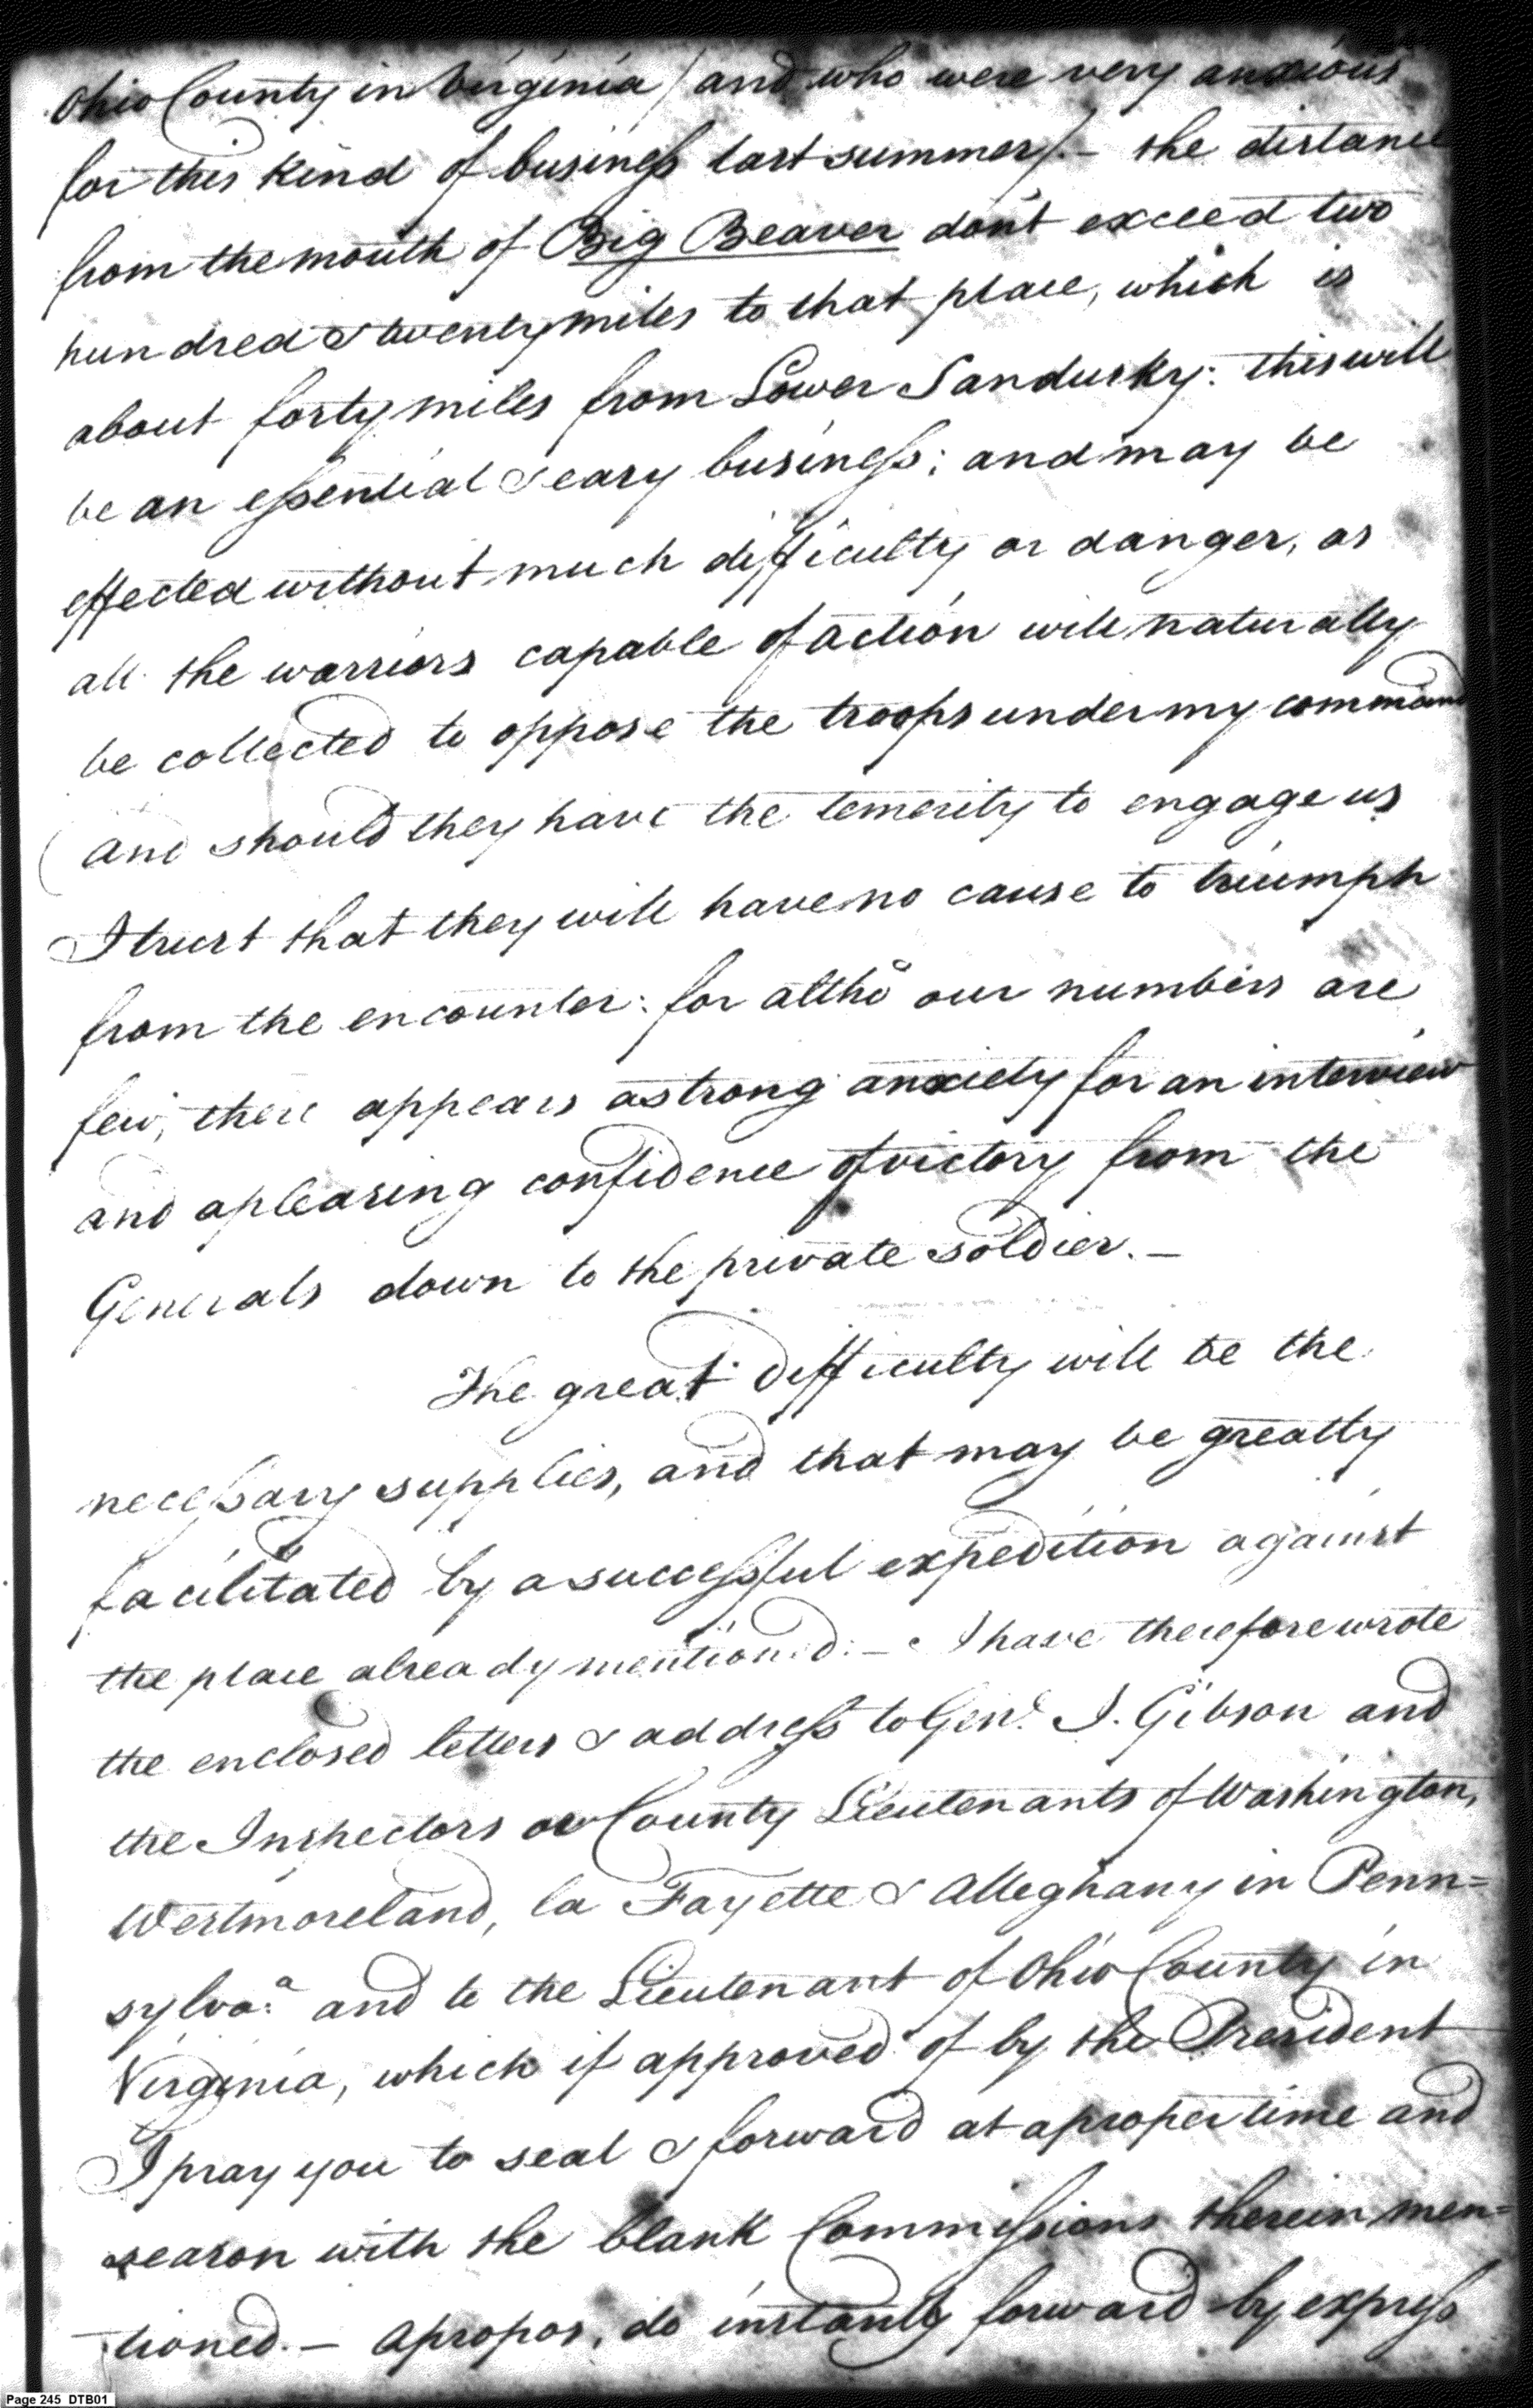 Ohio County in Virginia / and who were very anxious
for this kind of business last summer/.- the distance
from the mouth of Big Beaver dont exceed two
hundred & twenty miles to that place, which is
about forty miles from Lower Sandusky: this will
be an essential & easy business; and may be
effected without much difficulty or danger, as
all the warriors capable of action will naturally
be collected to oppose the troops under my command
and should they have the temerity to engage us
I trust that they will have no cause to triumph
from the encounter: for altho our numbers are
few, there appears a strong anxiety for an interview
and a pleasing confidence of victory from the
Generals down to the private soldier.-
The great difficulty will be the
necessary supplies, and that may be greatly
facilitated by a successful expedition against
the place already mentioned:- I have therefore wrote
the enclosed letters & address to Genl. J. Gibson and
the Inspectors or County Lieutenants of Washington,
Westmoreland, la Fayette & Alleghany in Penn=
sylva. and to the Lieutenant of Ohio County in
Virginia, which if approved of by the President
I pray you to seal & forward at a proper time and
season with the blank Commissions therein men=
tioned.- Apropos, do instantly forward by express
Page 245 DTB01